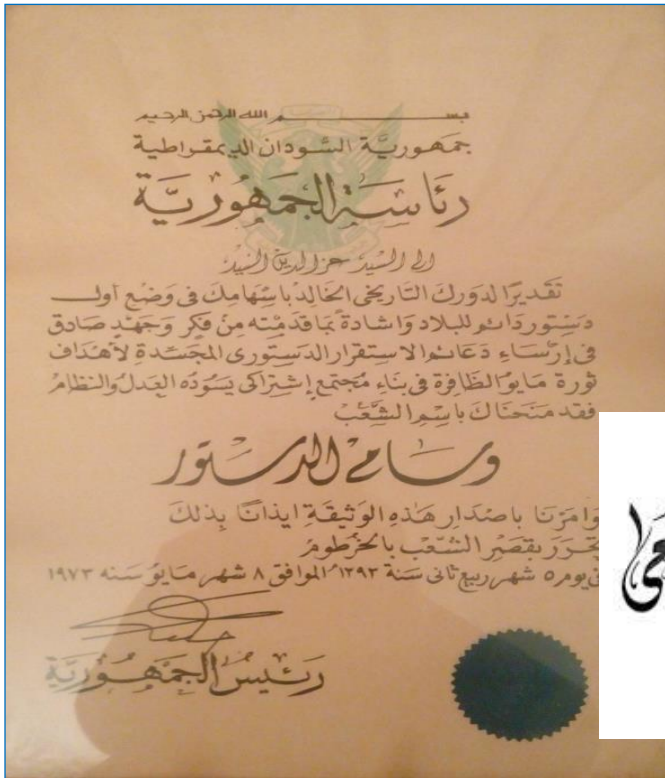 بسم الله الرحمن الرحيم
جمهورية السودان الديمقراطية
رئاسة الجمهورية
الى السيد عز الدين السيد
تقديرًا لدورك التاريخى الخالد باسهامك فى وضع أول
دستور دائم للبلاد واشادة بما قدمته من فكر وجهد صادق
فى إرساء دعائم الاستقرار الدستورى المجسدة لأهداف
ثورة مايو الظافرة فى بناء مجتمع إشتراكى يسوده العدل والنظام
فقد منحناك باسم الشعب
وسام الدستور
وامرنا باصدار هذه الوثيقة ايذانًا بذلك
تحرر بقصر الشعب بالخرطوم
فى يوم ٥ شهر ربيع ثانى سنة ١٣٩٣ الموافق ٨ شهر مايو سنه ١٩٧٣
رئيس الجمهورية